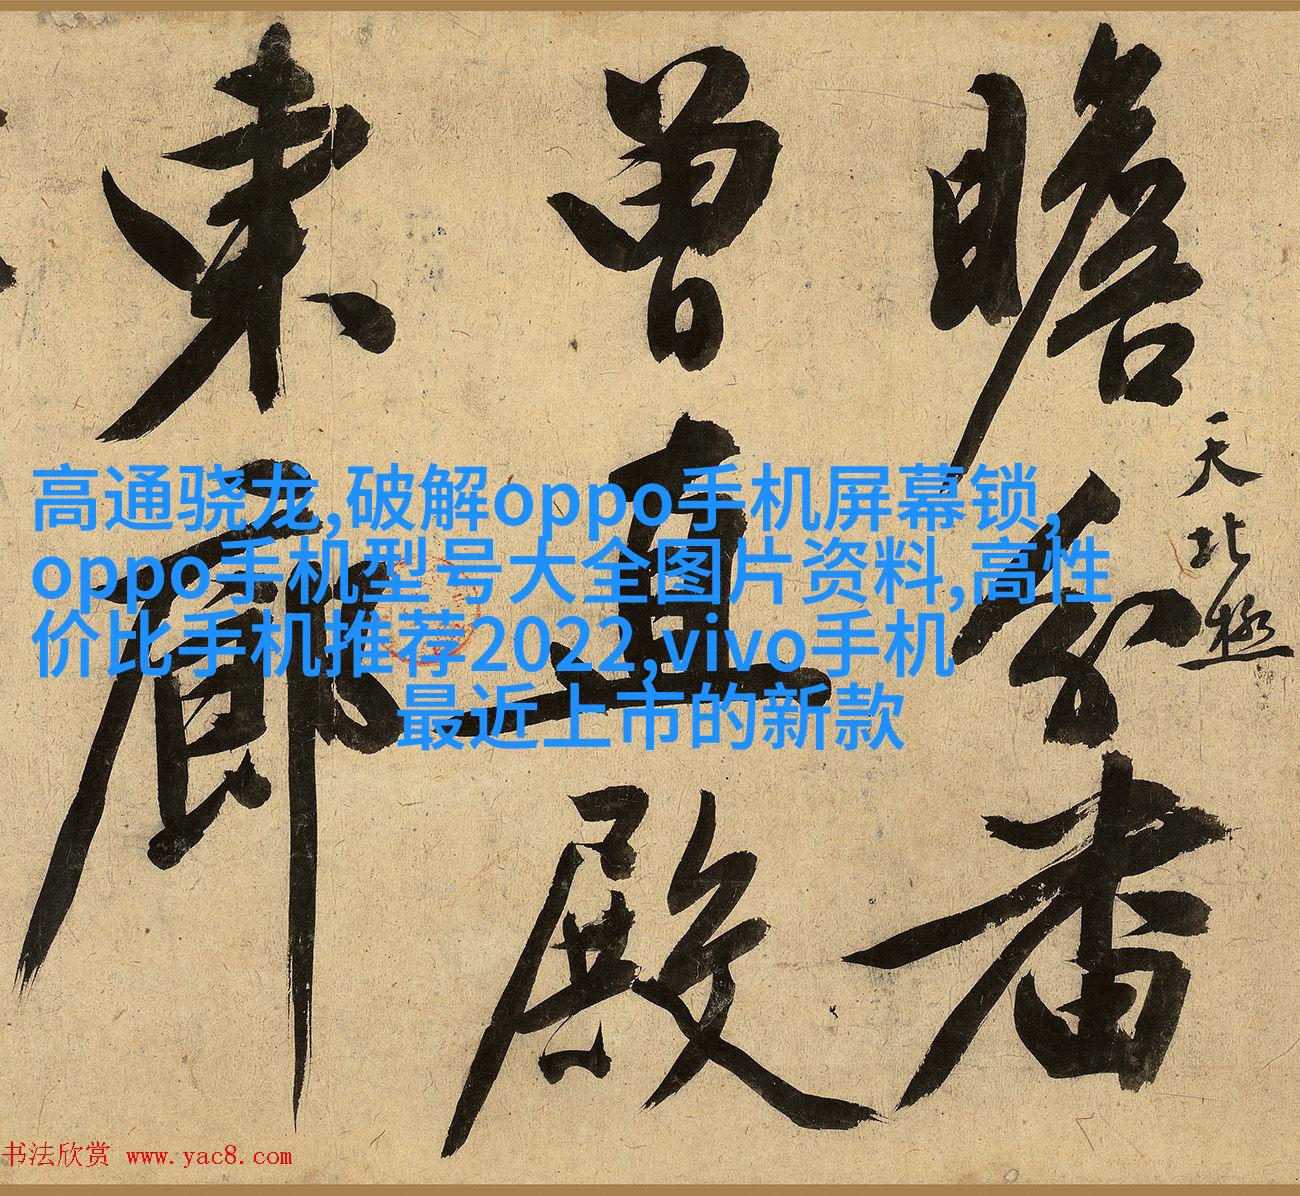 天北極
瞻分番
曾直殿
東廊
高通骁龙,破解oppo手机屏幕锁,
oppo手机型号大全图片资料,高性
价比手机推荐2022,vivo手机
最近上市的新款
书法欣赏 www.yac8.com